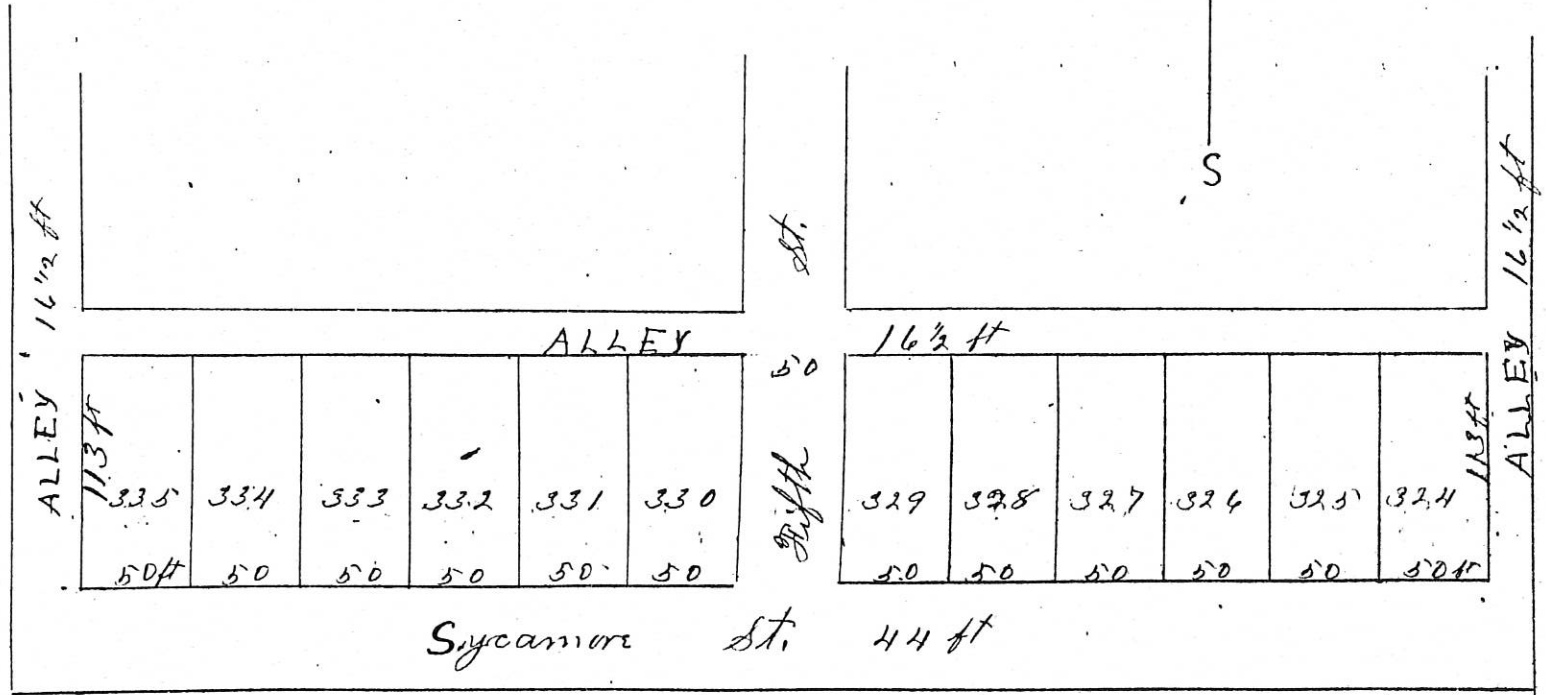 S
ALLEY 16 1/2 ft
St.
ALLEY 16 1/2 ft
ALLEY 16 1/2 ft
50
Fifth
113 ft
113 ft
335 334 333 332 331 330 329 328 327 326 325 324
50ft 50 50 50 50 50 50 50 50 50 50 50ft
Sycamore St. 44 ft